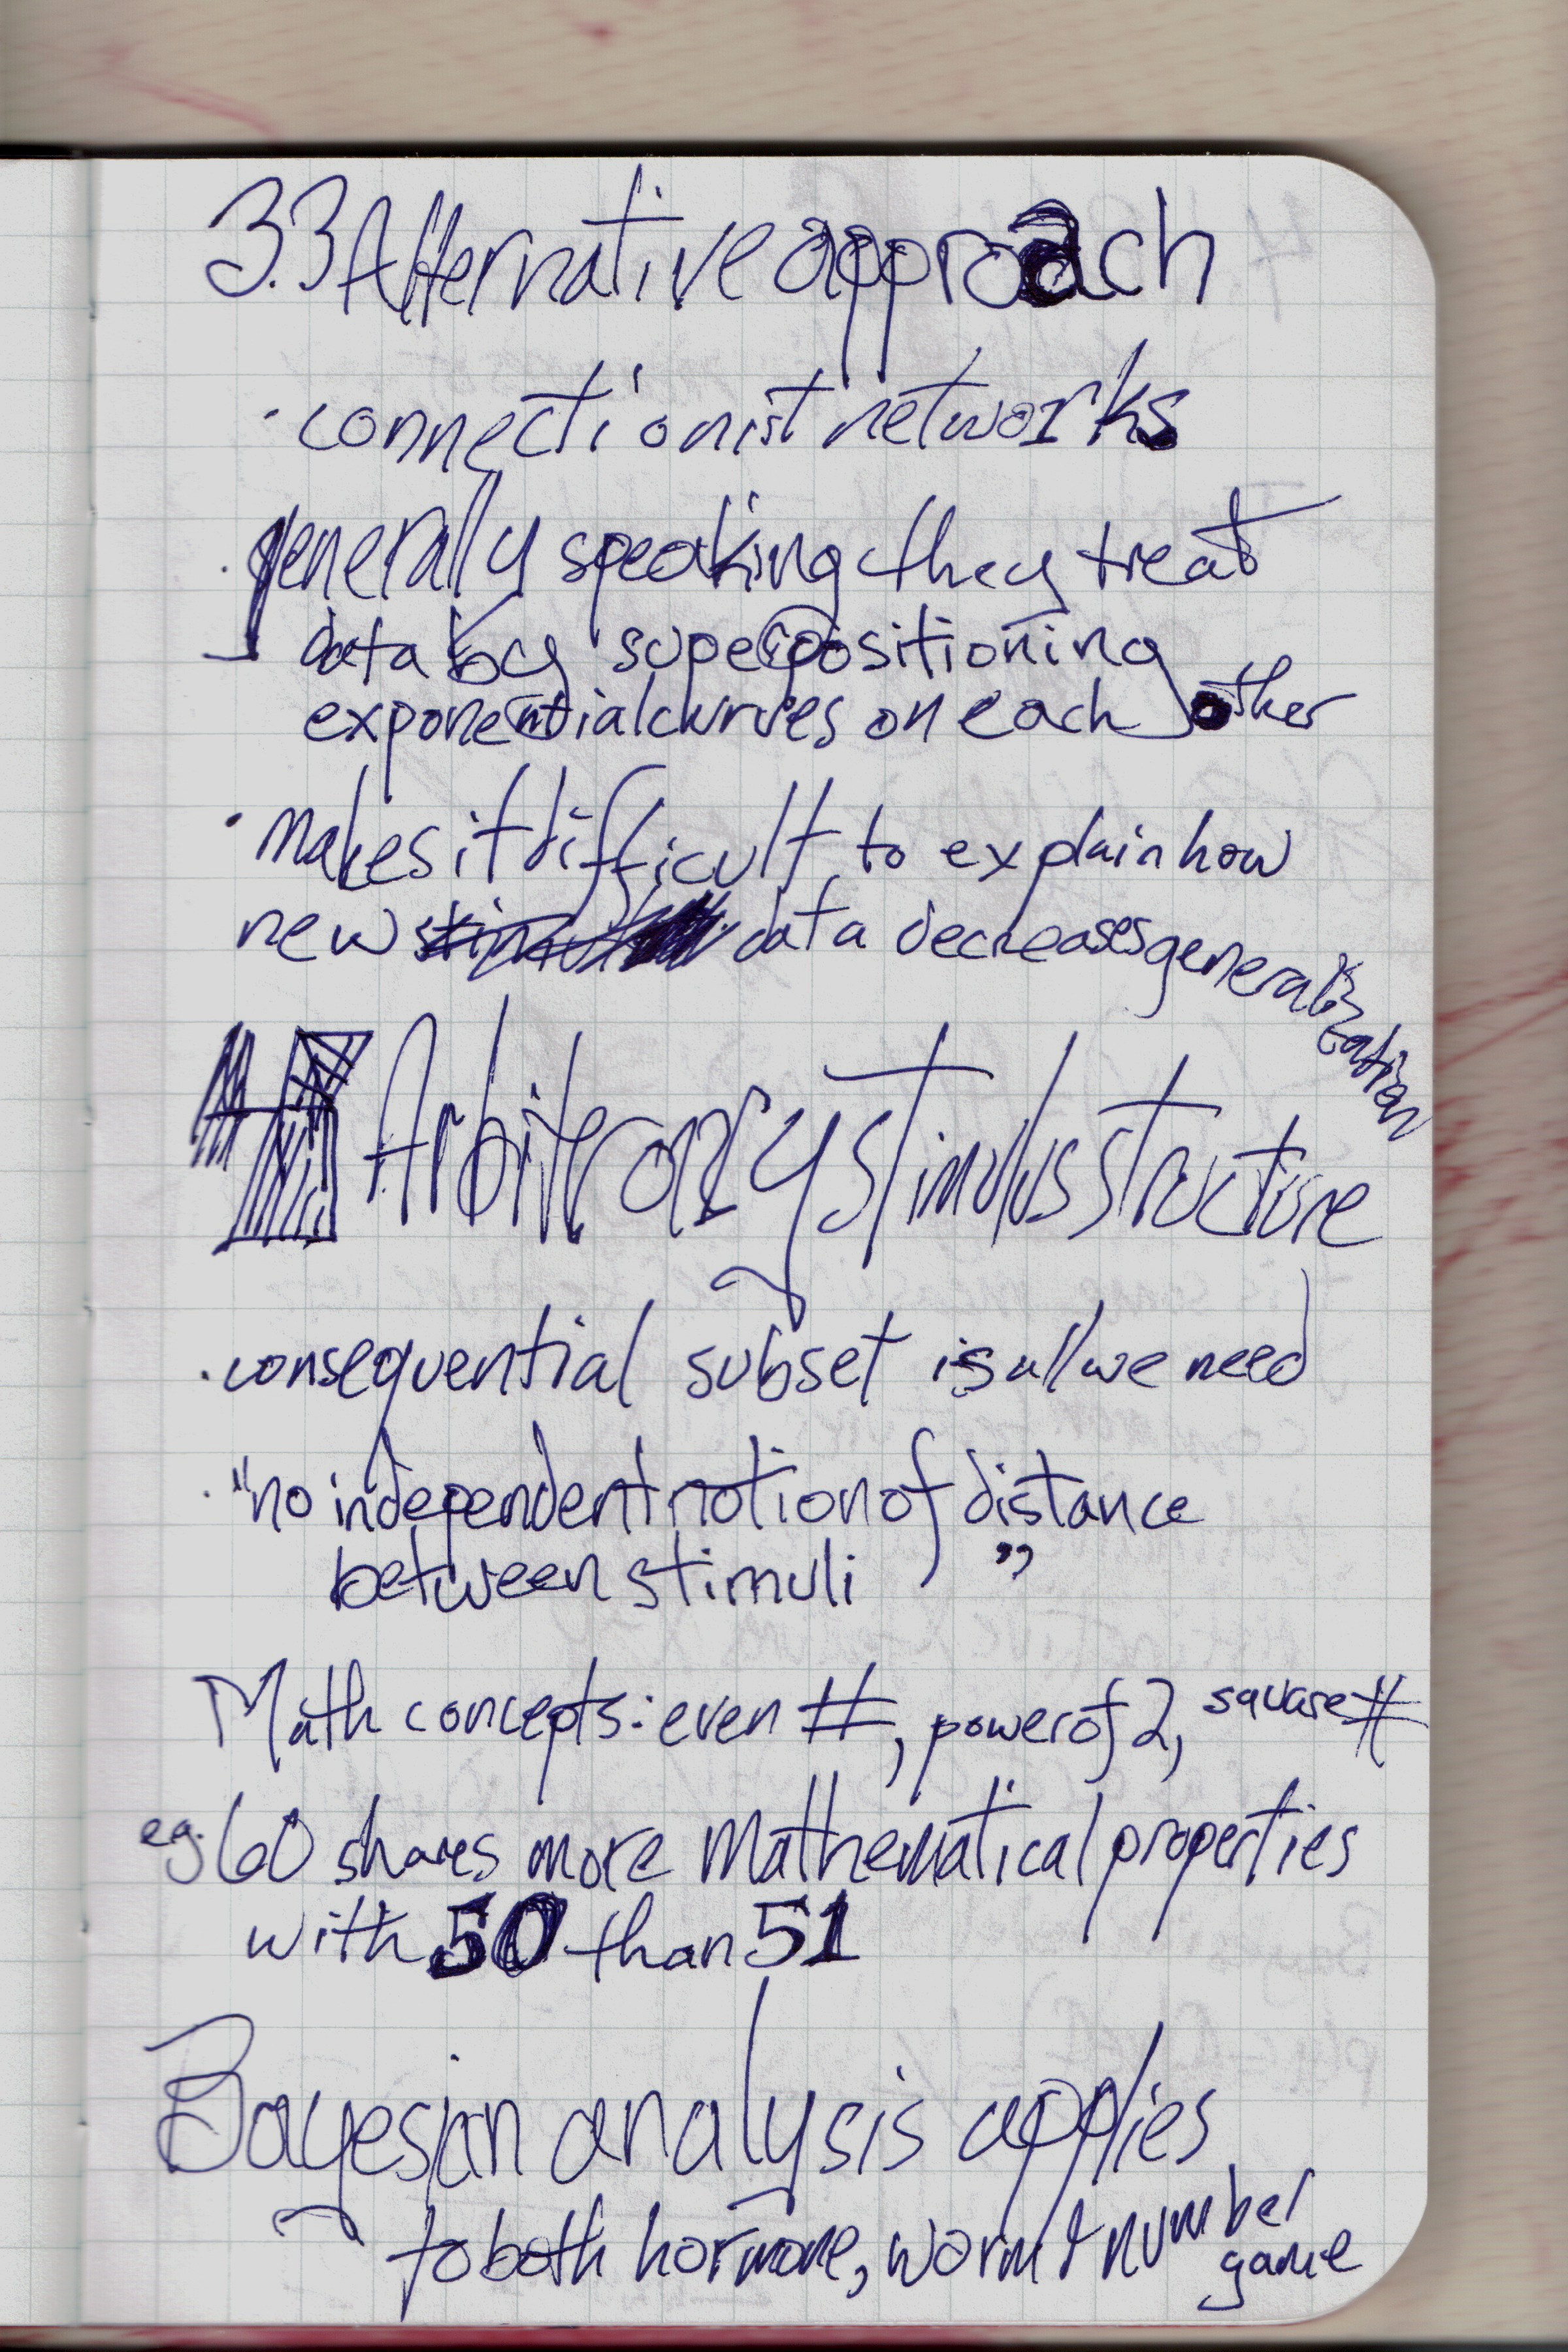 3.3 Alternative approach
· connectionist networks
· generally speaking they treat
data by superpositioning
exponential curves on each other
· makes it difficult to explain how
new data decreases generalization
4 Arbiterary stimulus structure
· consequential subset is all we need
· "no independent notion of distance
between stimuli "
Math concepts: even #, power of 2, square #
eg. 60 shares more mathematical properties
with 50 than 51
Bayesian analysis applies
to both hormone, worm & number
game